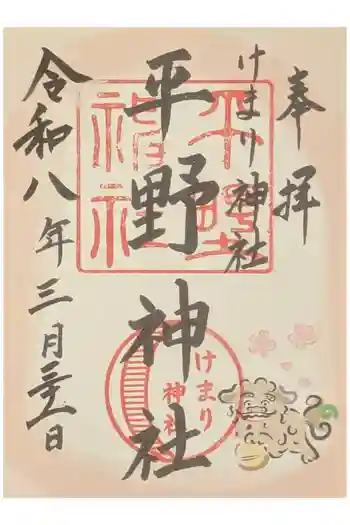 奉拝
けまり神社
平野神社
令和八年三月 日
平野
神社
けまり
神社